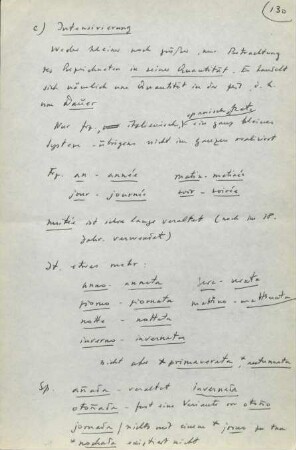 130
c) Intensivierung
Weder kleiner noch größer, nur Betrachtung
des Bezeichneten in seiner Quantität. Es handelt
sich nämlich um Quantität in der Zeit, d. h.
um Dauer
Nur frz., italienisch, spanisch, ein ganz kleines
System - übrigens nicht im ganzen realisiert
Frz. an - année matin - matinée
jour - journée soir - soirée
nuitée ist schon lange veraltet (noch im 18.
Jahr. verwendet)
It. etwas mehr:
anno - annata sera - serata
giorno - giornata mattino - mattinata
notte - nottata
inverno - invernata
nicht aber *primaverata, *autunnata
Sp. añada - veraltet invernada
otoñada - fast eine Variante von otoño
jornada (nichts mit einem *jorno zu tun
*nochada existiert nicht